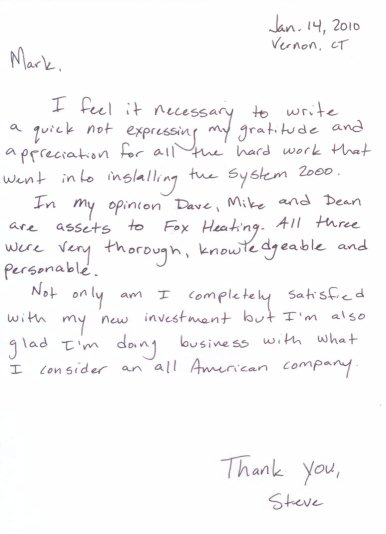 Jan. 14, 2010
Vernon, CT
Mark.
I feel it necessary to write
a quick not expressing my gratitude and
appreciation for all the hard work that
went into installing the System 2000.
In my opinion Dave, Mike and Dean
are assets to Fox Heating. All three
were very thorough, knowledgeable and
personable.
Not only am I completely satisfied
with my new investment but I'm also
glad I'm doing business with what
I consider an all American company.
Thank you,
Steve